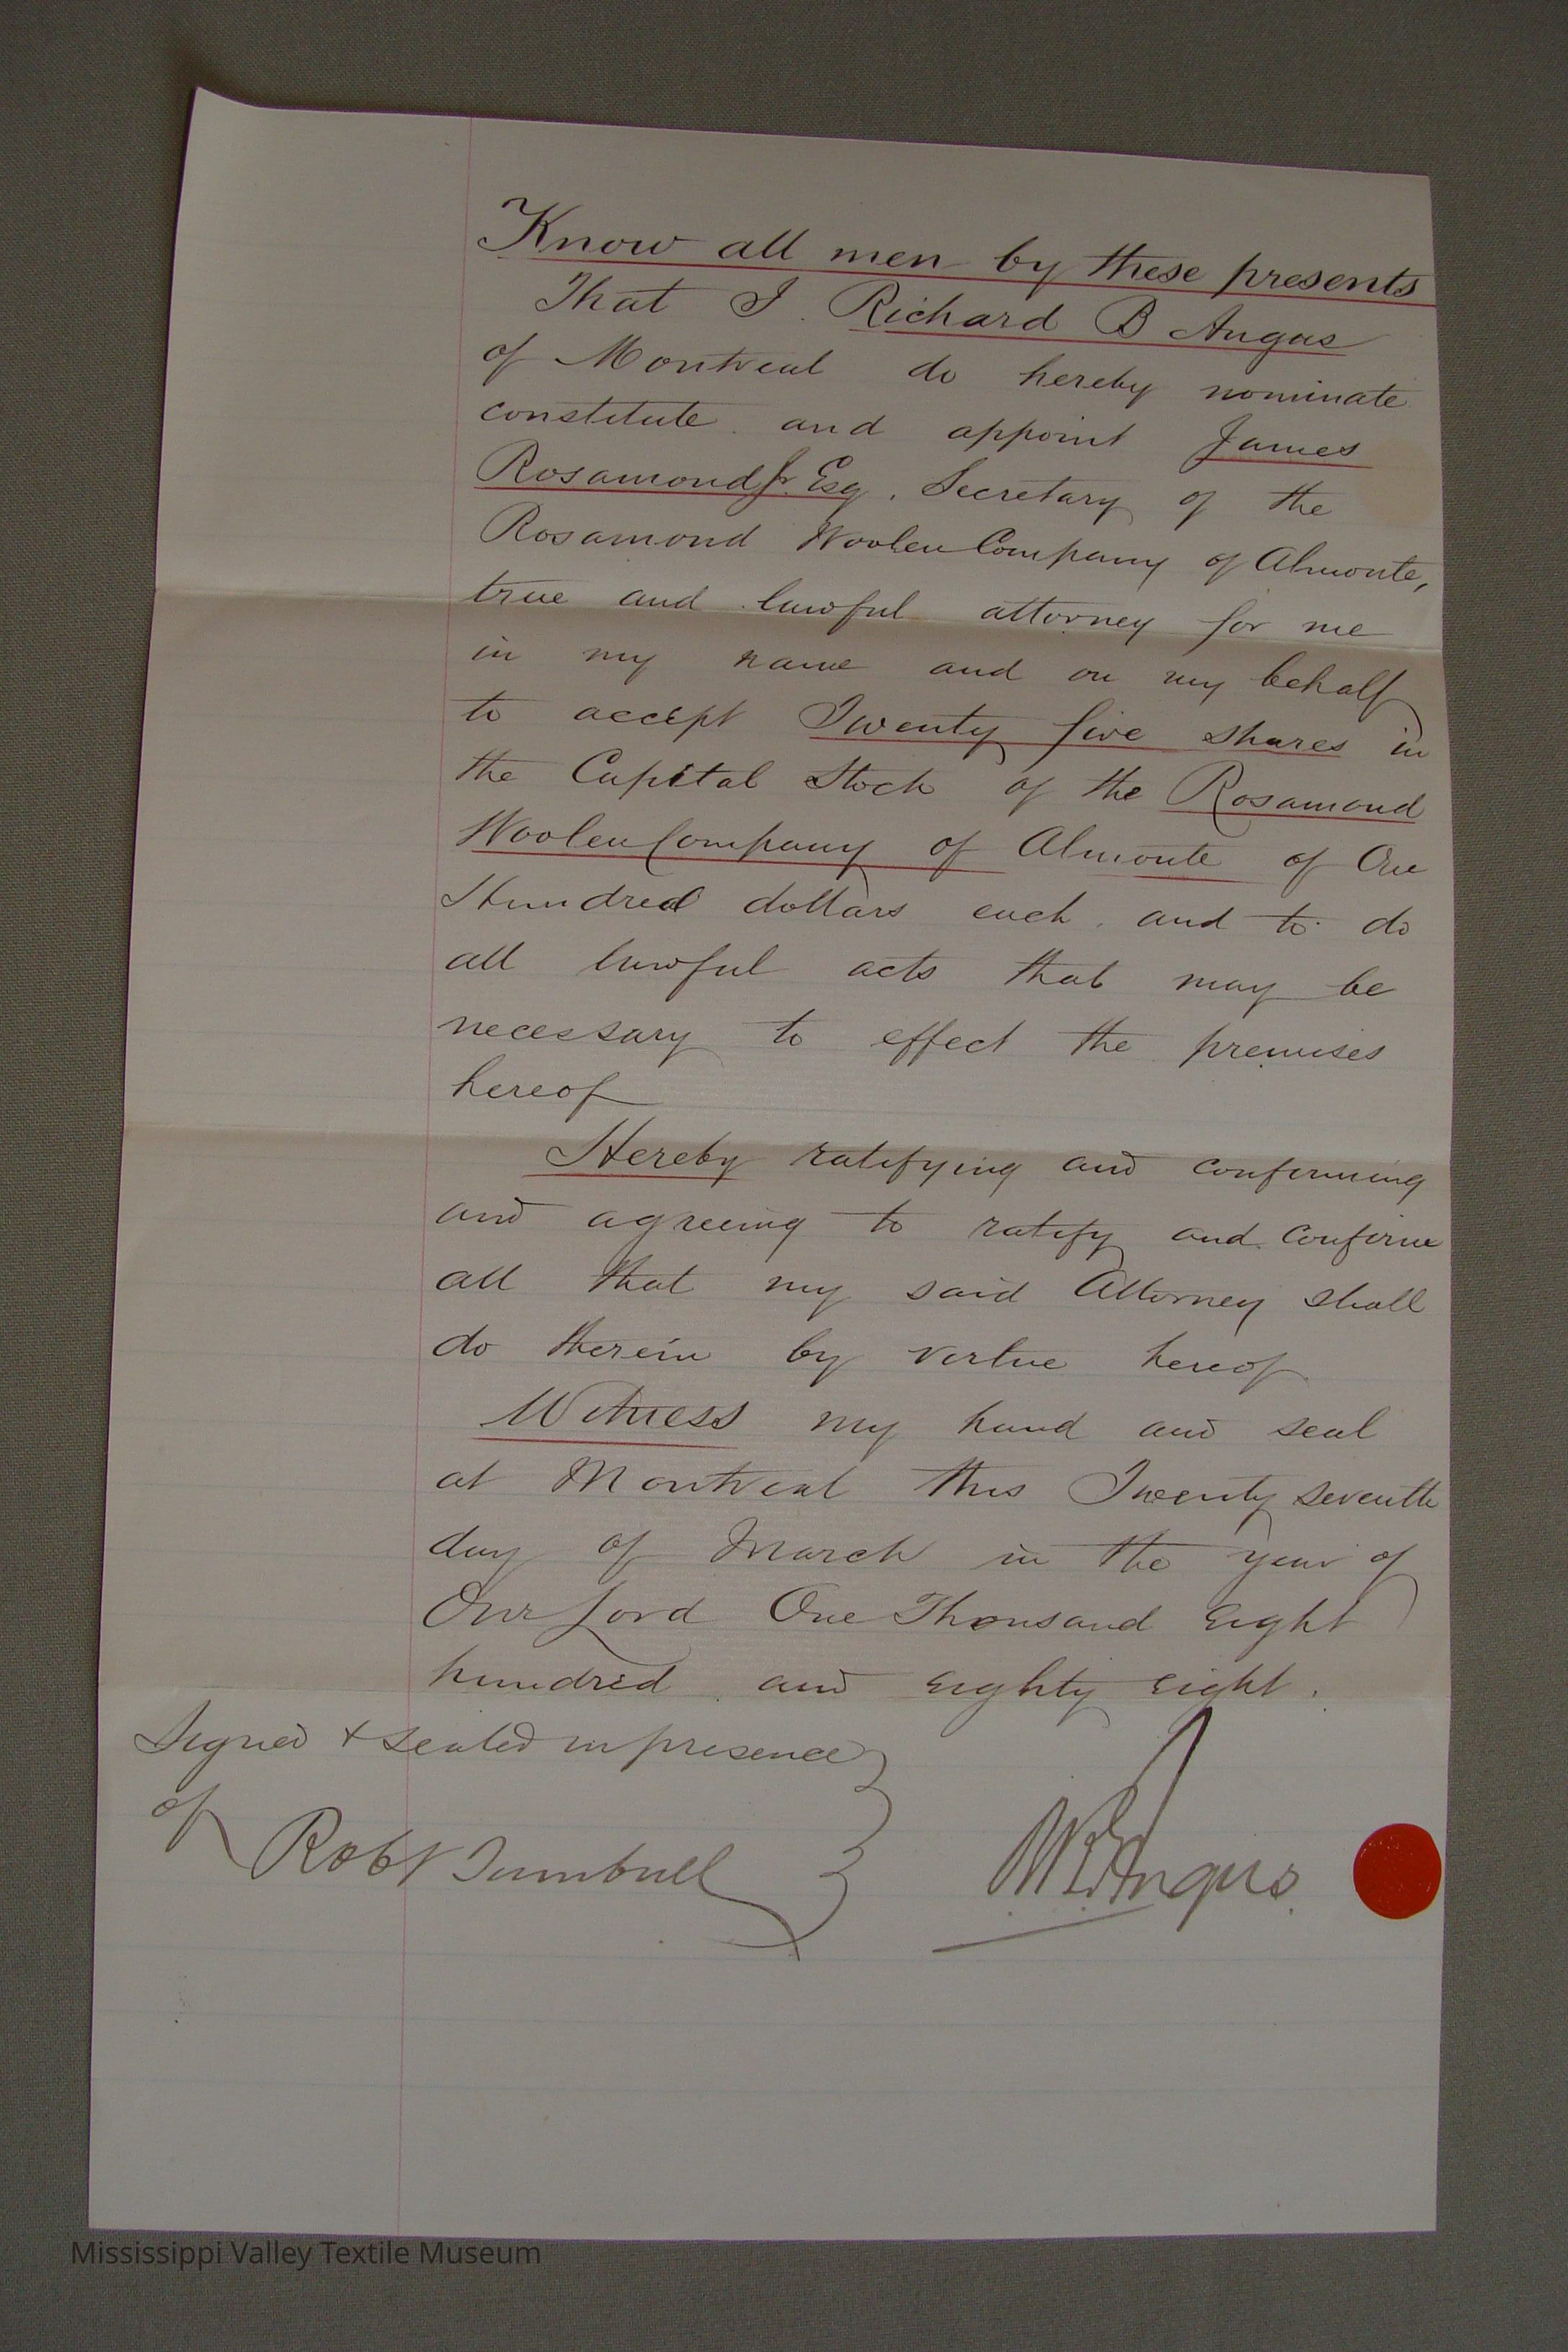 Know all men by these presents
That I. Richard B Angus
of Montreal do hereby nominate
constitute and appoint James
Rosamond Jr. Esq. Secretary of the
Rosamond Woolen Company of Almonte,
true and lawful attorney for me
in my name and on my behalf
to accept Twenty five shares in
the Capital Stock of the Rosamond
Woolen Company of Almonte of One
Hundred dollars each. and to do
all lawful acts that may be
necessary to effect the premises
hereof
Hereby ratifying and confirming
and agreeing to ratify and confirm
all that my said Attorney shall
do therein by virtue hereof
Witness my hand and seal
at Montreal this Twenty seventh
day of March in the year of
Our Lord One Thousand Eight
hundred and eighty eight.
Signed & sealed in presence
of Robt Turnbull
RB Angus.
Mississippi Valley Textile Museum